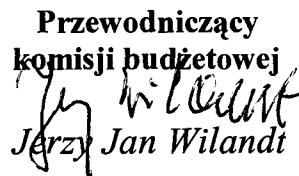 Przewodniczący
komisji budżetowej
Jerzy Jan Wilandt